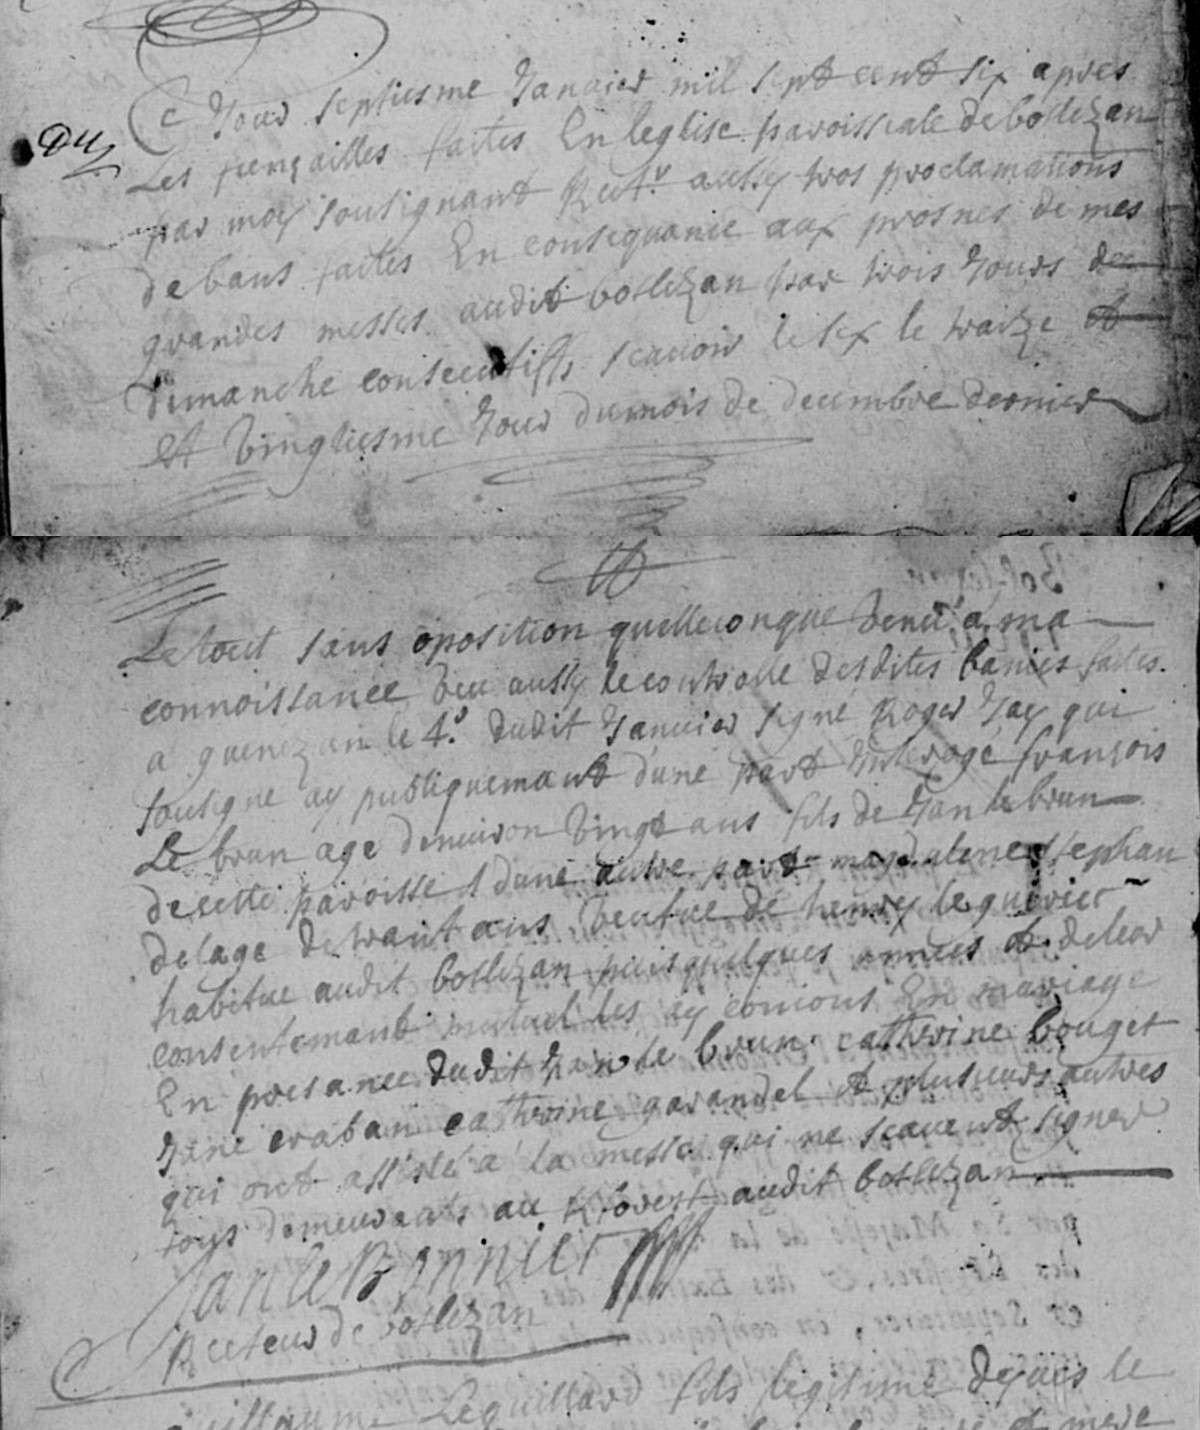 Du
Ce Jour septiesme Januier mil sept cent six apres
Les fiençailles faites En leglise paroissiale de botlezan
par moy sousignant Rect.r aussy trois proclamations
de bans faites En consequance aux prosnes de mes
grandes messes audit botlezan par trois Jours de
dimanche consecutiffs scauoir le six le traize et
et Vingtiesme Jour du mois de decembre dernier
Le tout sans oposition quelleconque Venu a ma
connoissance Veu aussy le controlle desdites banies faites
a guenezan le 4.e dudit Januier signé Roger Jay qui
sousigne ay publiquemant d'une part Interogé françois
Le brun agé denuiron Vingt ans fils de Jan le brun
de cette paroisse & dune autre part magdalene stephan
delage de trante ans Veufue de henry le guerier
habitue audit botlezan puis quelques années et de leur
consentemant mutuel les ay conious En mariage
En presance dudit Jan le brun catherine bouget
Jane craban catherine garandel et plusieurs autres
qui ont assisté a la messe qui ne scauent signer
tous demeurants au audit botlezan
Jan le Bonnier
Recteur de botlezan
guillaume Leguillard fils legitime de yues le
et mere